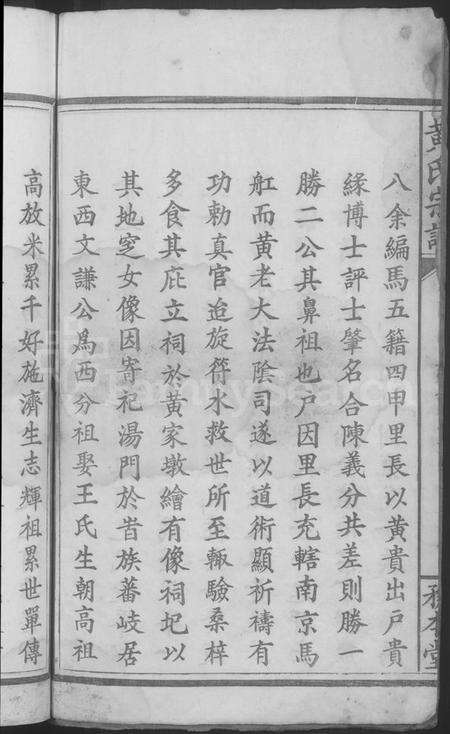 黃氏宗譜
八余編馬五籍四甲里長以黃貴出戸貴
緣博士評士肇名合陳義分共差則勝一
勝二公其鼻祖也戸因里長充轄南京馬
舡而黃老大法陰司遂以道術顯祈禱有
功勅真官迨旋符水救世所至輙驗桑梓
多食其庇立祠於黃家墩繪有像祠圮以
其地窆女像因寄祀湯門於旹族蕃岐居
東西文謙公爲西分祖娶王氏生朝高祖
高放米累千好施濟生志輝祖累世單傳